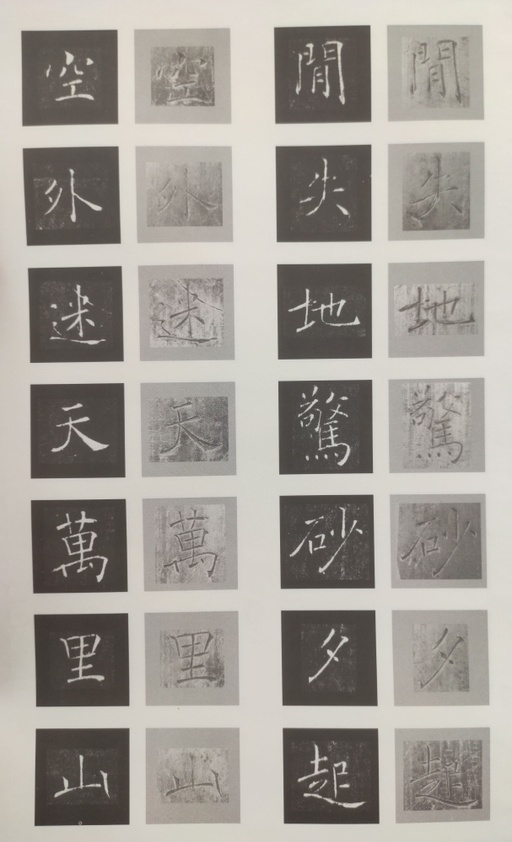 閒失地驚砂夕起
閒失地驚砂夕起
空外迷天萬里山
空外迷天萬里山